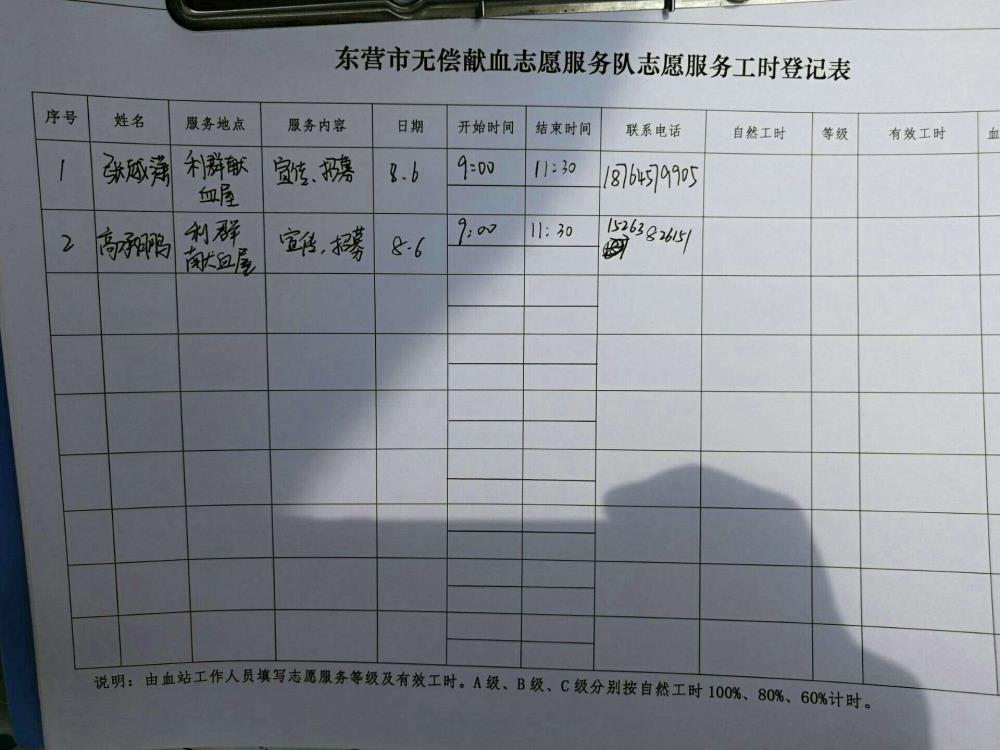 东营市无偿献血志愿服务队志愿服务工时登记表
序号 姓名 服务地点 服务内容 日期 开始时间 结束时间 联系电话 自然工时 等级 有效工时 血
1 利群献 宣传、招募 8.6 9:00 11:30 18764579905
血屋
2 利群 宣传、招募 8.6 9:00 11:30 15263826151
献血屋
说明：由血站工作人员填写志愿服务等级及有效工时。A级、B级、C级分别按自然工时100%、80%、60%计时。